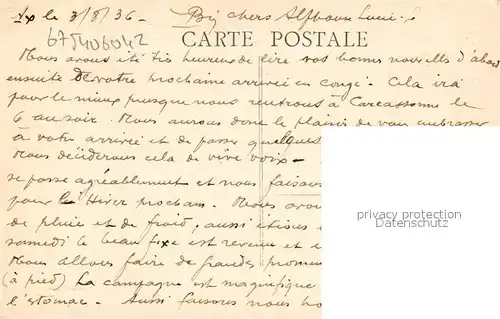 Ax le 3/8/36 - Bien chers Alphonse Lucie
675406042
CARTE POSTALE
Nous avons été très heureux de lire vos bonnes nouvelles d'abord
ensuite de votre prochaine arrivée en congé. Cela ira
pour le mieux puisque nous rentrons à Carcassonne le
6 au soir. Nous aurons donc le plaisir de vous embrasser
à votre arrivée et de passer quelques
Nous déciderons cela de vive voix -
se passe agréablement et nous faisons
pour l'Hiver prochain. Nous avons
de pluie et de froid, aussi étions
samedi le beau fixe est revenu et
Nous allons faire de grandes
(à pied) La campagne est magnifique
l'estomac. Aussi faisons nous
privacy protection
Datenschutz